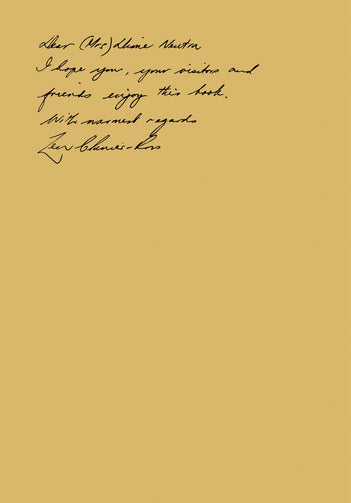 Dear (Mrs) Newton
I hope you, your visitors and
friends enjoy this book.
With warmest regards